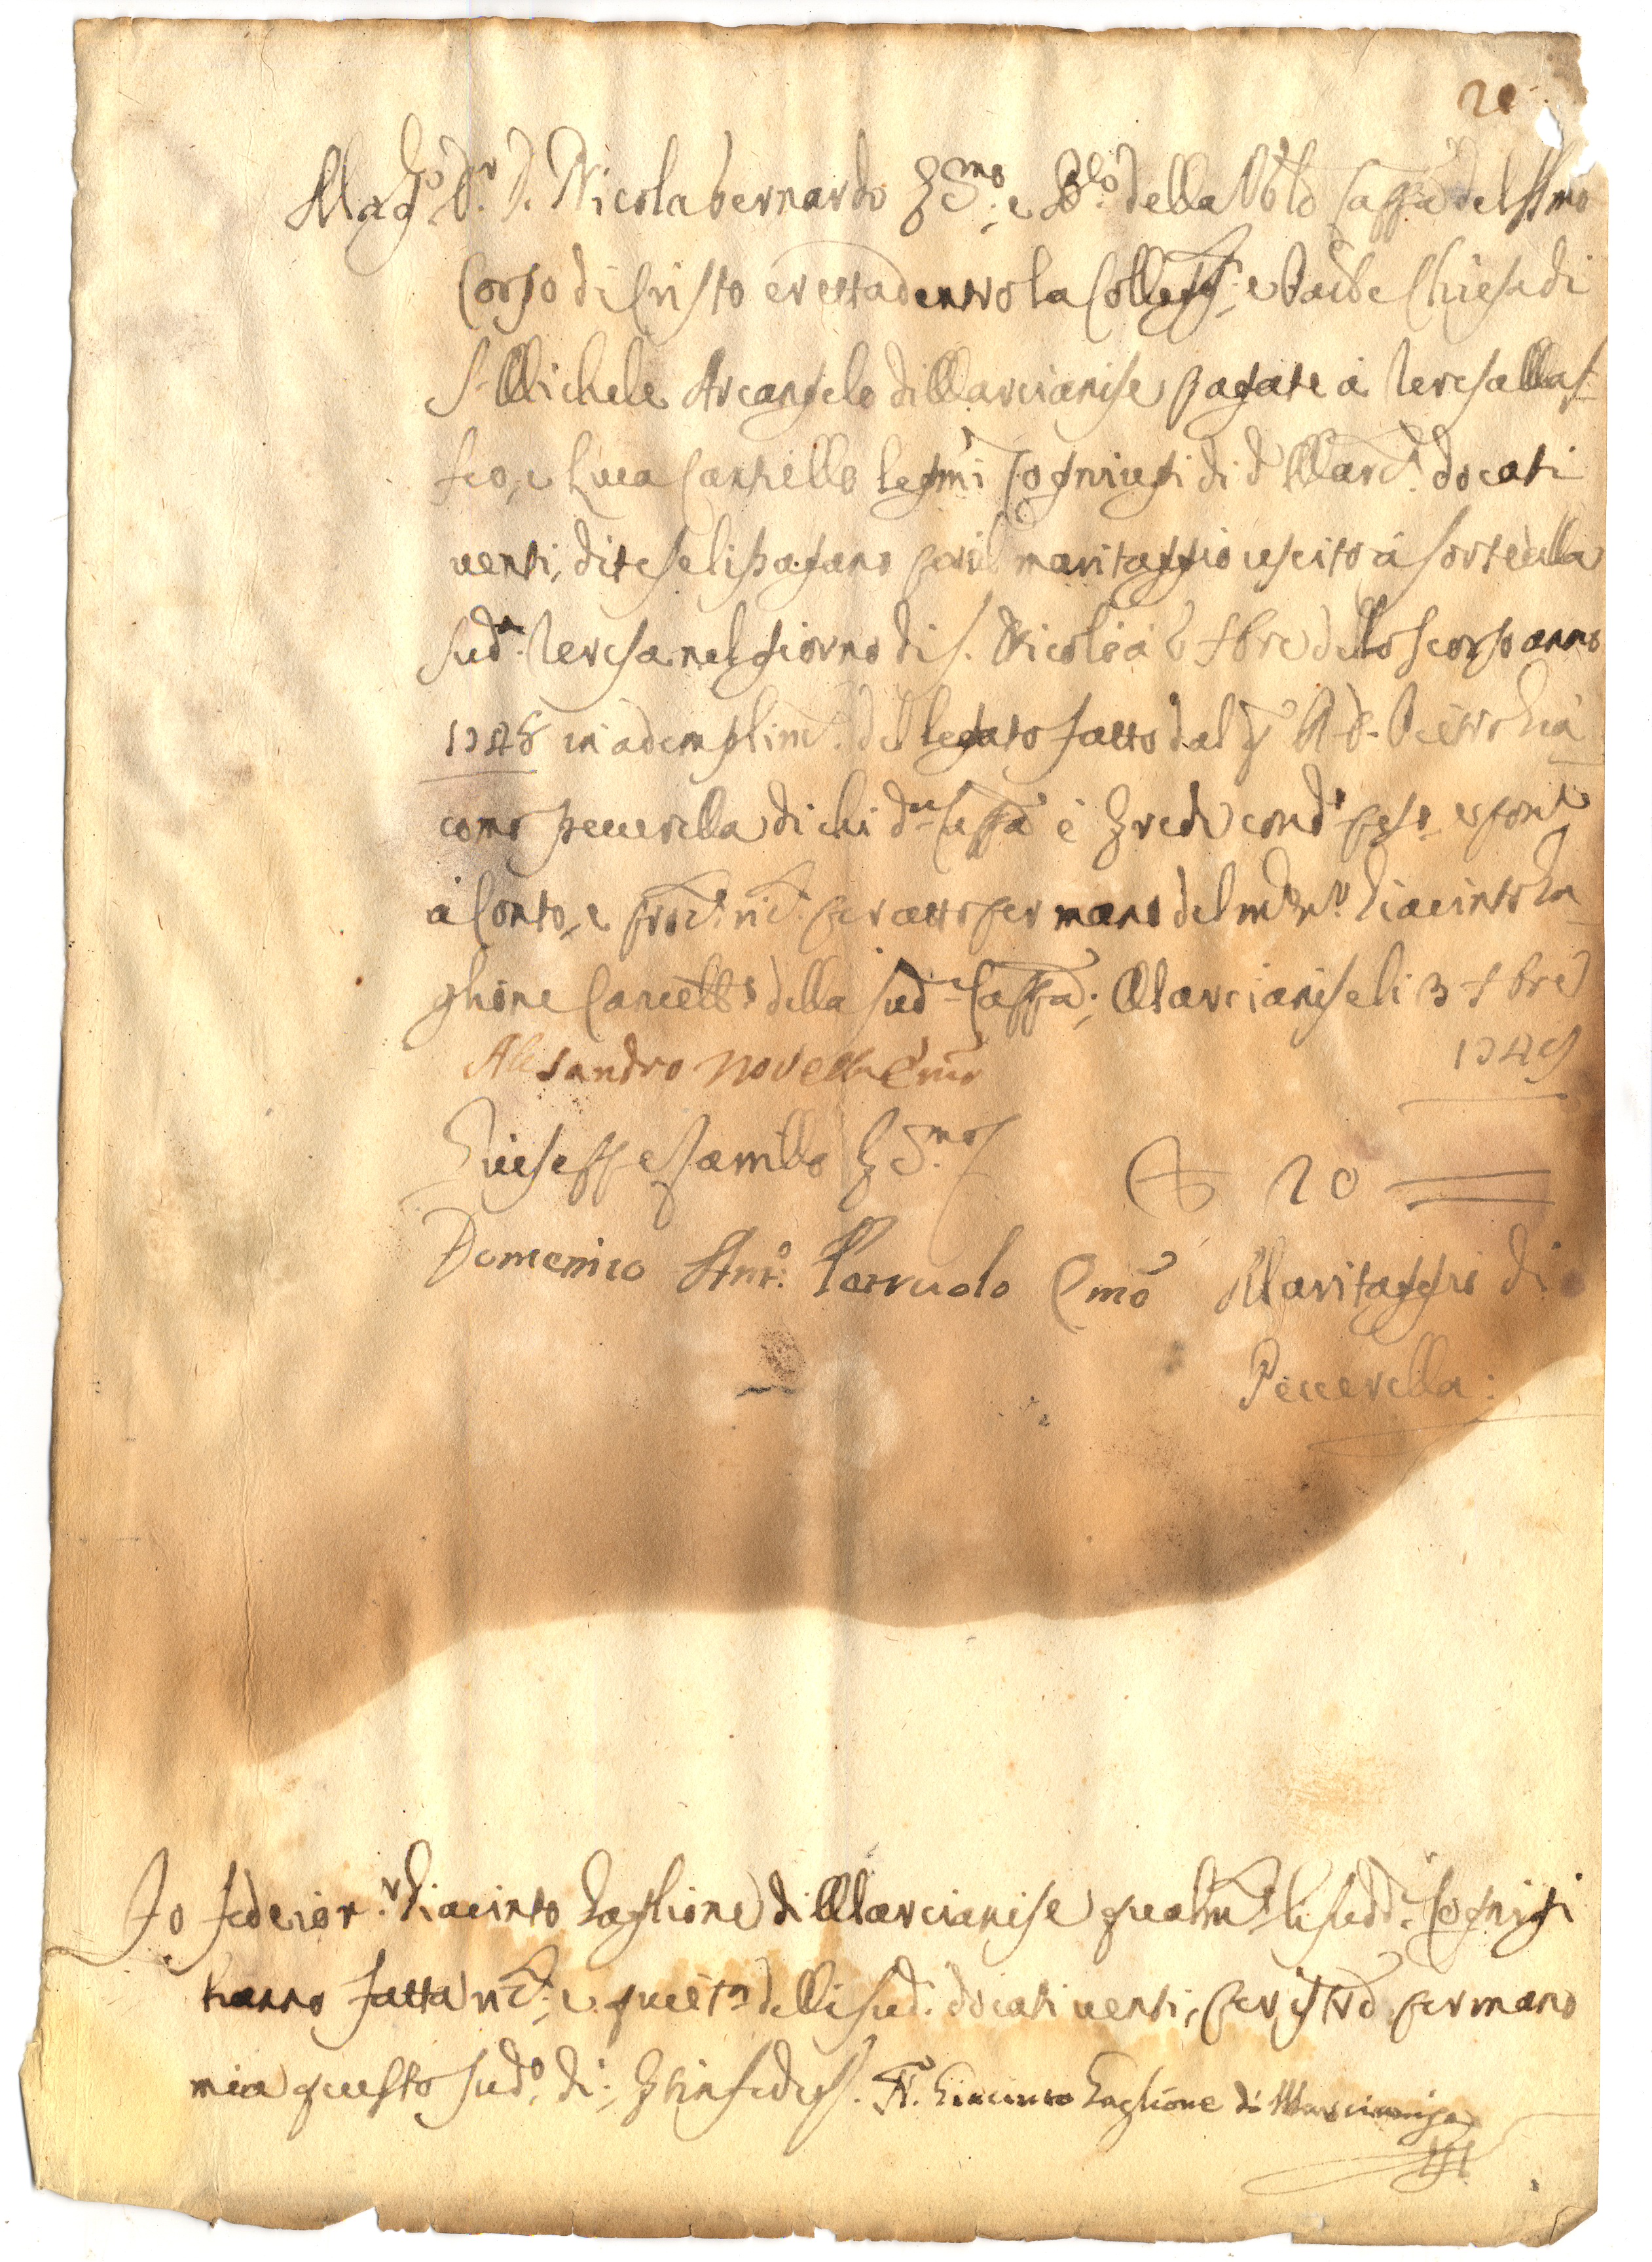 20
Mag.co D.r D. Nicola bernardo Ec.mo e B.lo della Vble Cappa del SSmo
Corpo di Cristo eretta dentro la Colleg.ta, e Parle Chiesa di
S. Michele Arcangelo di Marcianise pagate à Teresa Maf=
feo, e Luca Cantiello legmi Cogniugi di d.a Marc.e docati
venti, dite se li pagano per il maritaggio uscito à sorte alla
sud.a Teresa nel giorno di S. Nicolò à 6 Xbre dello scorso anno
1748 in ademplim.to del legato fatto dal q.m R. D. Pietro Gia=
como peccerella di chi d.a Cappa è Erede
à Conto, e per atto per mano del m.co N.r Giacinto Ga=
glione Cancell.e della sud.a Cappa. Marcianise li 3 Xbre
1749
Alesandro Novelli Ecmo
Giuseppe Ec.mo
20
Domenico Ant.o Ecmo
Maritaggio di
Peccerella:
Io fò fede io N.r Giacinto Gaglione di Marcianise qualm.te li sudd.i Cogniugi
hanno fatta ric.ta, e quiet.za delli sud.i docati venti, per istro per mano
mia questo sud.o dì; Et in fede &c. N.r Giacinto Gaglione di Marcianise